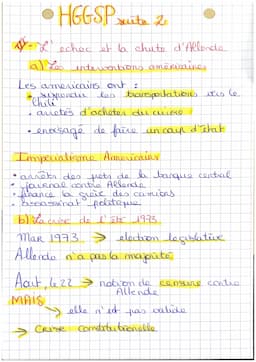 HGGSP suite 2
IV - L'echec et la chute d'Allende
a) Les interventions américaines
Les americains ont :
• suspendu les transportations vers le
Chili
• arretés d'acheter du cuivre
• envisagé de faire un coup d'état
Imperialisme Americain
• arrêts des prêts de la banque central
• journal contre Allende
• finance la grève des camions
• assassinat politique
b) La crise de l'été 1973
Mar 1973 → election legislative
Allende n'a pas la majorité
Aout, le 22 → notion de censure contre
Allende
MAIS
↳ elle n'est pas valide
→ Crise constitutionelle